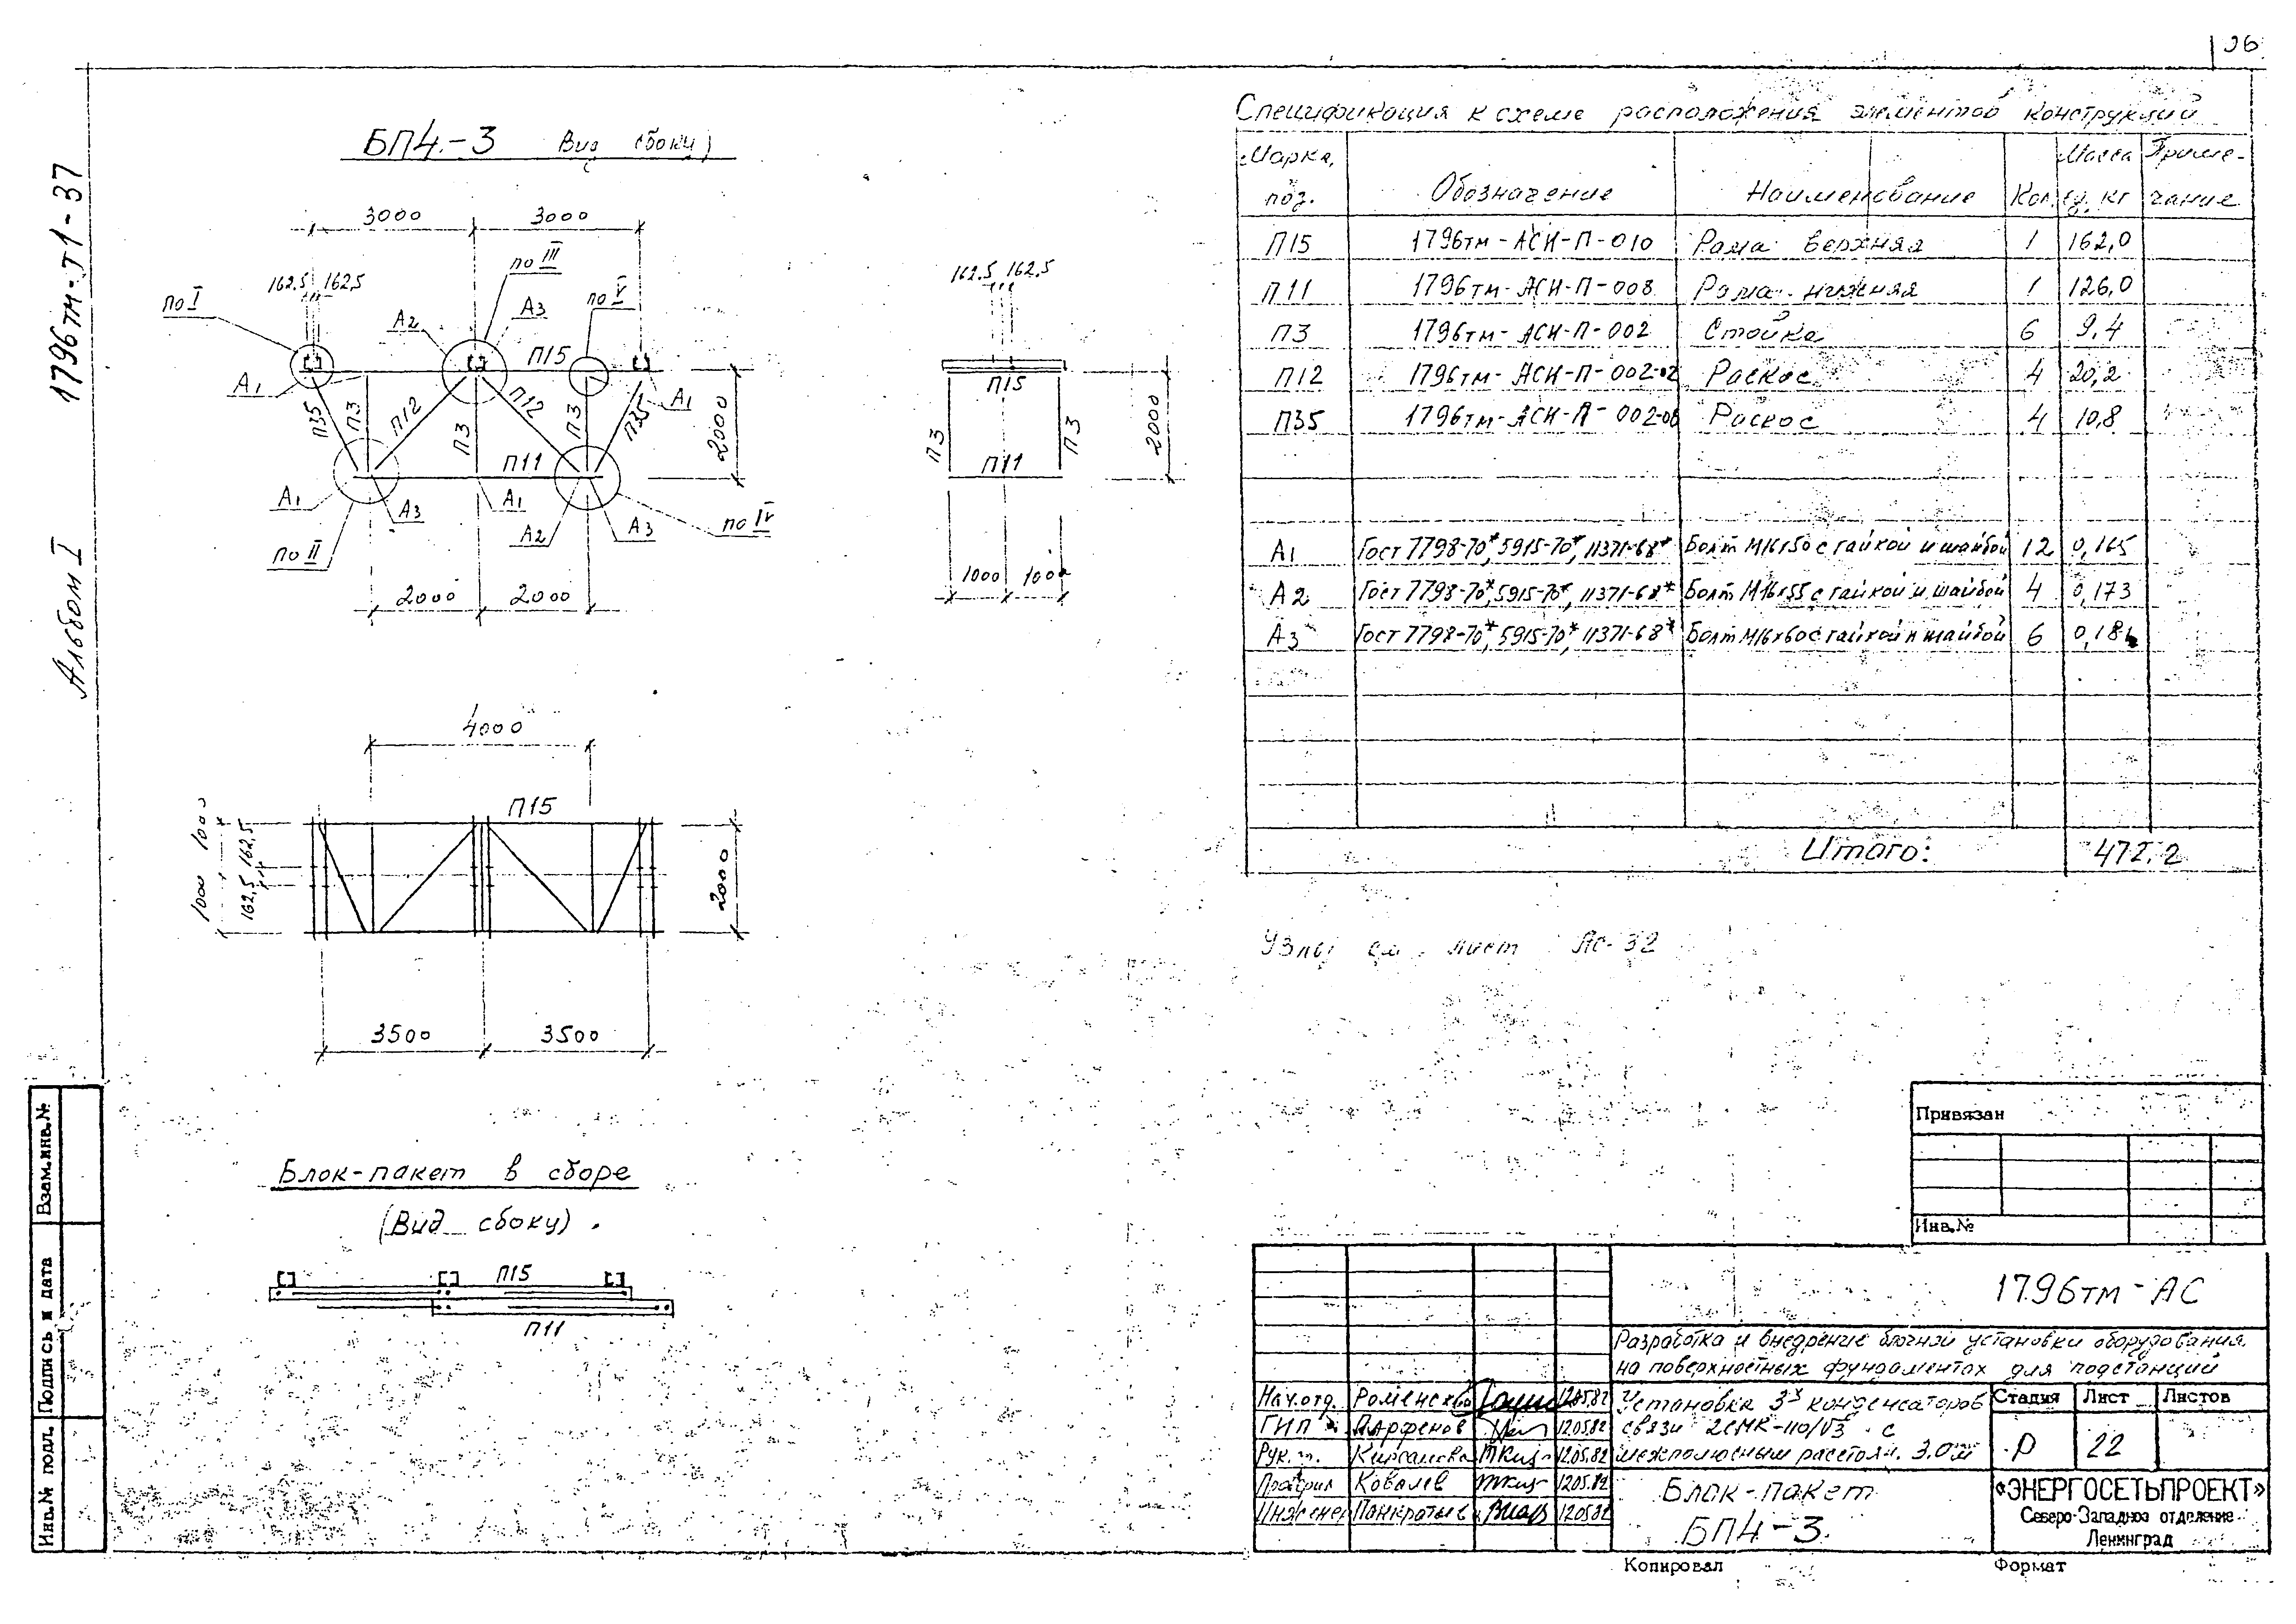 26
1796тм-Т1-37
Альбом I
БП4-3 Вид сбоку)
3000 3000
162,5 162,5
по I
по III
по V
А2
А3
П15
А1
А1
П35
П3
П12
П3
П12
П3
П35
2000
А1
А3
П11
А1
А2
А3
по IV
по II
2000 2000
162,5 162,5
П15
П3
П3
П11
2000
1000 1000
4000
П15
1000 1000
162,5 162,5
2000
3500 3500
Блок-пакет в сборе
(Вид сбоку).
П15
П11
Спецификация к схеме расположения элементов конструкций
Марка, поз. Обозначение Наименование Кол. Масса ед. кг Приме-чание
П15 1796тм-АСИ-П-010 Рама верхняя 1 162,0
П11 1796тм-АСИ-П-008 Рама нижняя 1 126,0
П3 1796тм-АСИ-П-002 Стойка 6 9,4
П12 1796тм-АСИ-П-002-02 Раскос 4 20,2
П35 1796тм-АСИ-П-002-08 Раскос 4 10,8
А1 Гост 7798-70*, 5915-70*, 11371-68* Болт М16х50 с гайкой и шайбой 12 0,165
А2 Гост 7798-70*, 5915-70*, 11371-68* Болт М16х55 с гайкой и шайбой 4 0,173
А3 Гост 7798-70*, 5915-70*, 11371-68* Болт М16х60 с гайкой и шайбой 6 0,181
Итого: 472,2
Узлы см. лист АС-32
Привязан
Инв.№
1796тм-АС
Разработка и внедрение блочной установки оборудования
на поверхностных фундаментах для подстанций
Нач.отд. Роменский 12.05.82
ГИП Парфенов 12.05.82
Рук. гр. Кирсанова 12.05.82
Проверил Ковалев 12.05.82
Инженер Панкратьев 12.05.82
Установка 3х конденсаторов
связи 2СМК-110/√3 с
межполюсным расстоян. 3.0м
Стадия Лист Листов
Р 22
Блок-пакет
БП4-3.
«ЭНЕРГОСЕТЬПРОЕКТ»
Северо-Западное отделение
Ленинград
Копировал Формат
Взам.инв.№
Подпись и дата
Инв.№ подл.